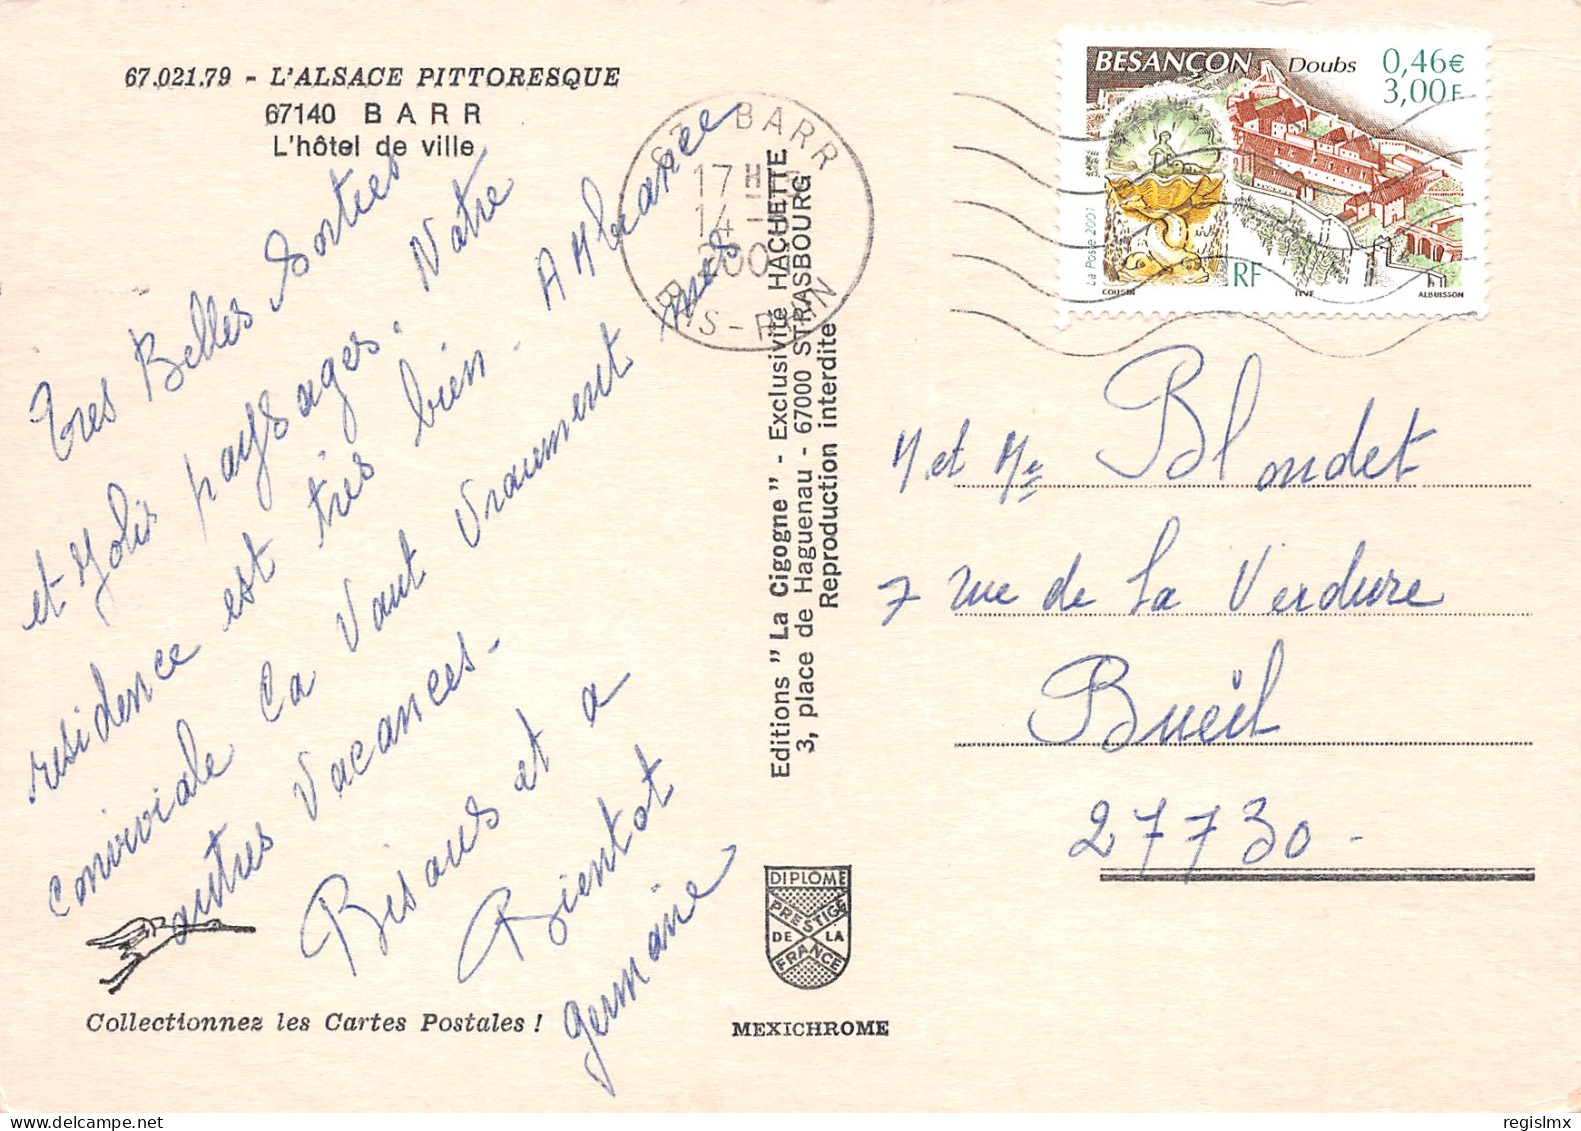 67.021.79 - L'ALSACE PITTORESQUE
67140 BARR
L'hôtel de ville
Tres Belles Sorties
et Jolis paysages. Notre
residence est très bien. Ambiance
conviviale Ca Vaut Vraiment mes
autres Vacances.
Bisous et a
Bientot
germaine
Collectionnez les Cartes Postales !
Editions "La Cigogne" - Exclusivité HACHETTE
3, place de Haguenau - 67000 STRASBOURG
Reproduction interdite
DIPLOME
PRESTIGE
DE LA
FRANCE
MEXICHROME
67 BARR
17 H
14
BAS-RHIN
BESANÇON Doubs 0,46€
3,00F
La Poste 2001
RF
ALBUISSON
M. et Me Blondet
7 rue de La Verdure
Bueil
27730 -
regislmx